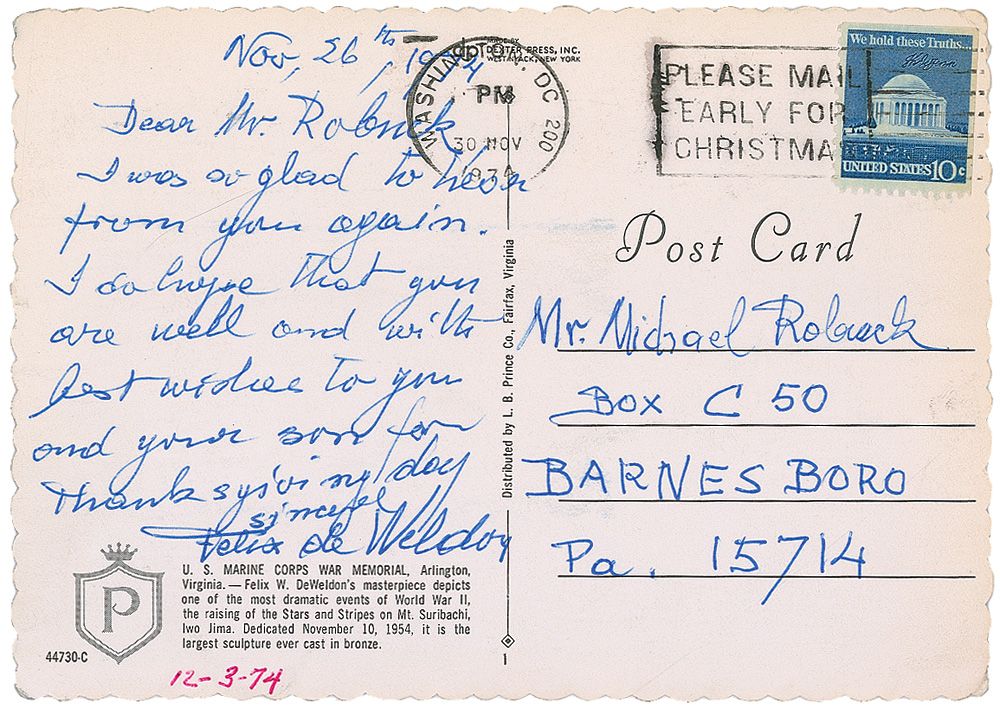 Nov, 26th, 1974
Dear Mr. Robuck
I was so glad to hear
from you again.
I do hope that you
are well and with
best wishes to you
and your son for
Thanksgiving day
Felix de Weldon
U. S. MARINE CORPS WAR MEMORIAL, Arlington,
Virginia. — Felix W. DeWeldon's masterpiece depicts
one of the most dramatic events of World War II,
the raising of the Stars and Stripes on Mt. Suribachi,
Iwo Jima. Dedicated November 10, 1954, it is the
largest sculpture ever cast in bronze.
P
44730-C
12-3-74
MADE BY
DEXTER PRESS, INC.
WEST NYACK, NEW YORK
Distributed by L. B. Prince Co., Fairfax, Virginia
1
WASHINGTON, DC 200
PM
30 NOV
1974
PLEASE MAIL
EARLY FOR
CHRISTMA
We hold these Truths...
UNITED STATES 10c
Post Card
Mr. Michael Robuck
Box C 50
BARNESBORO
Pa. 15714